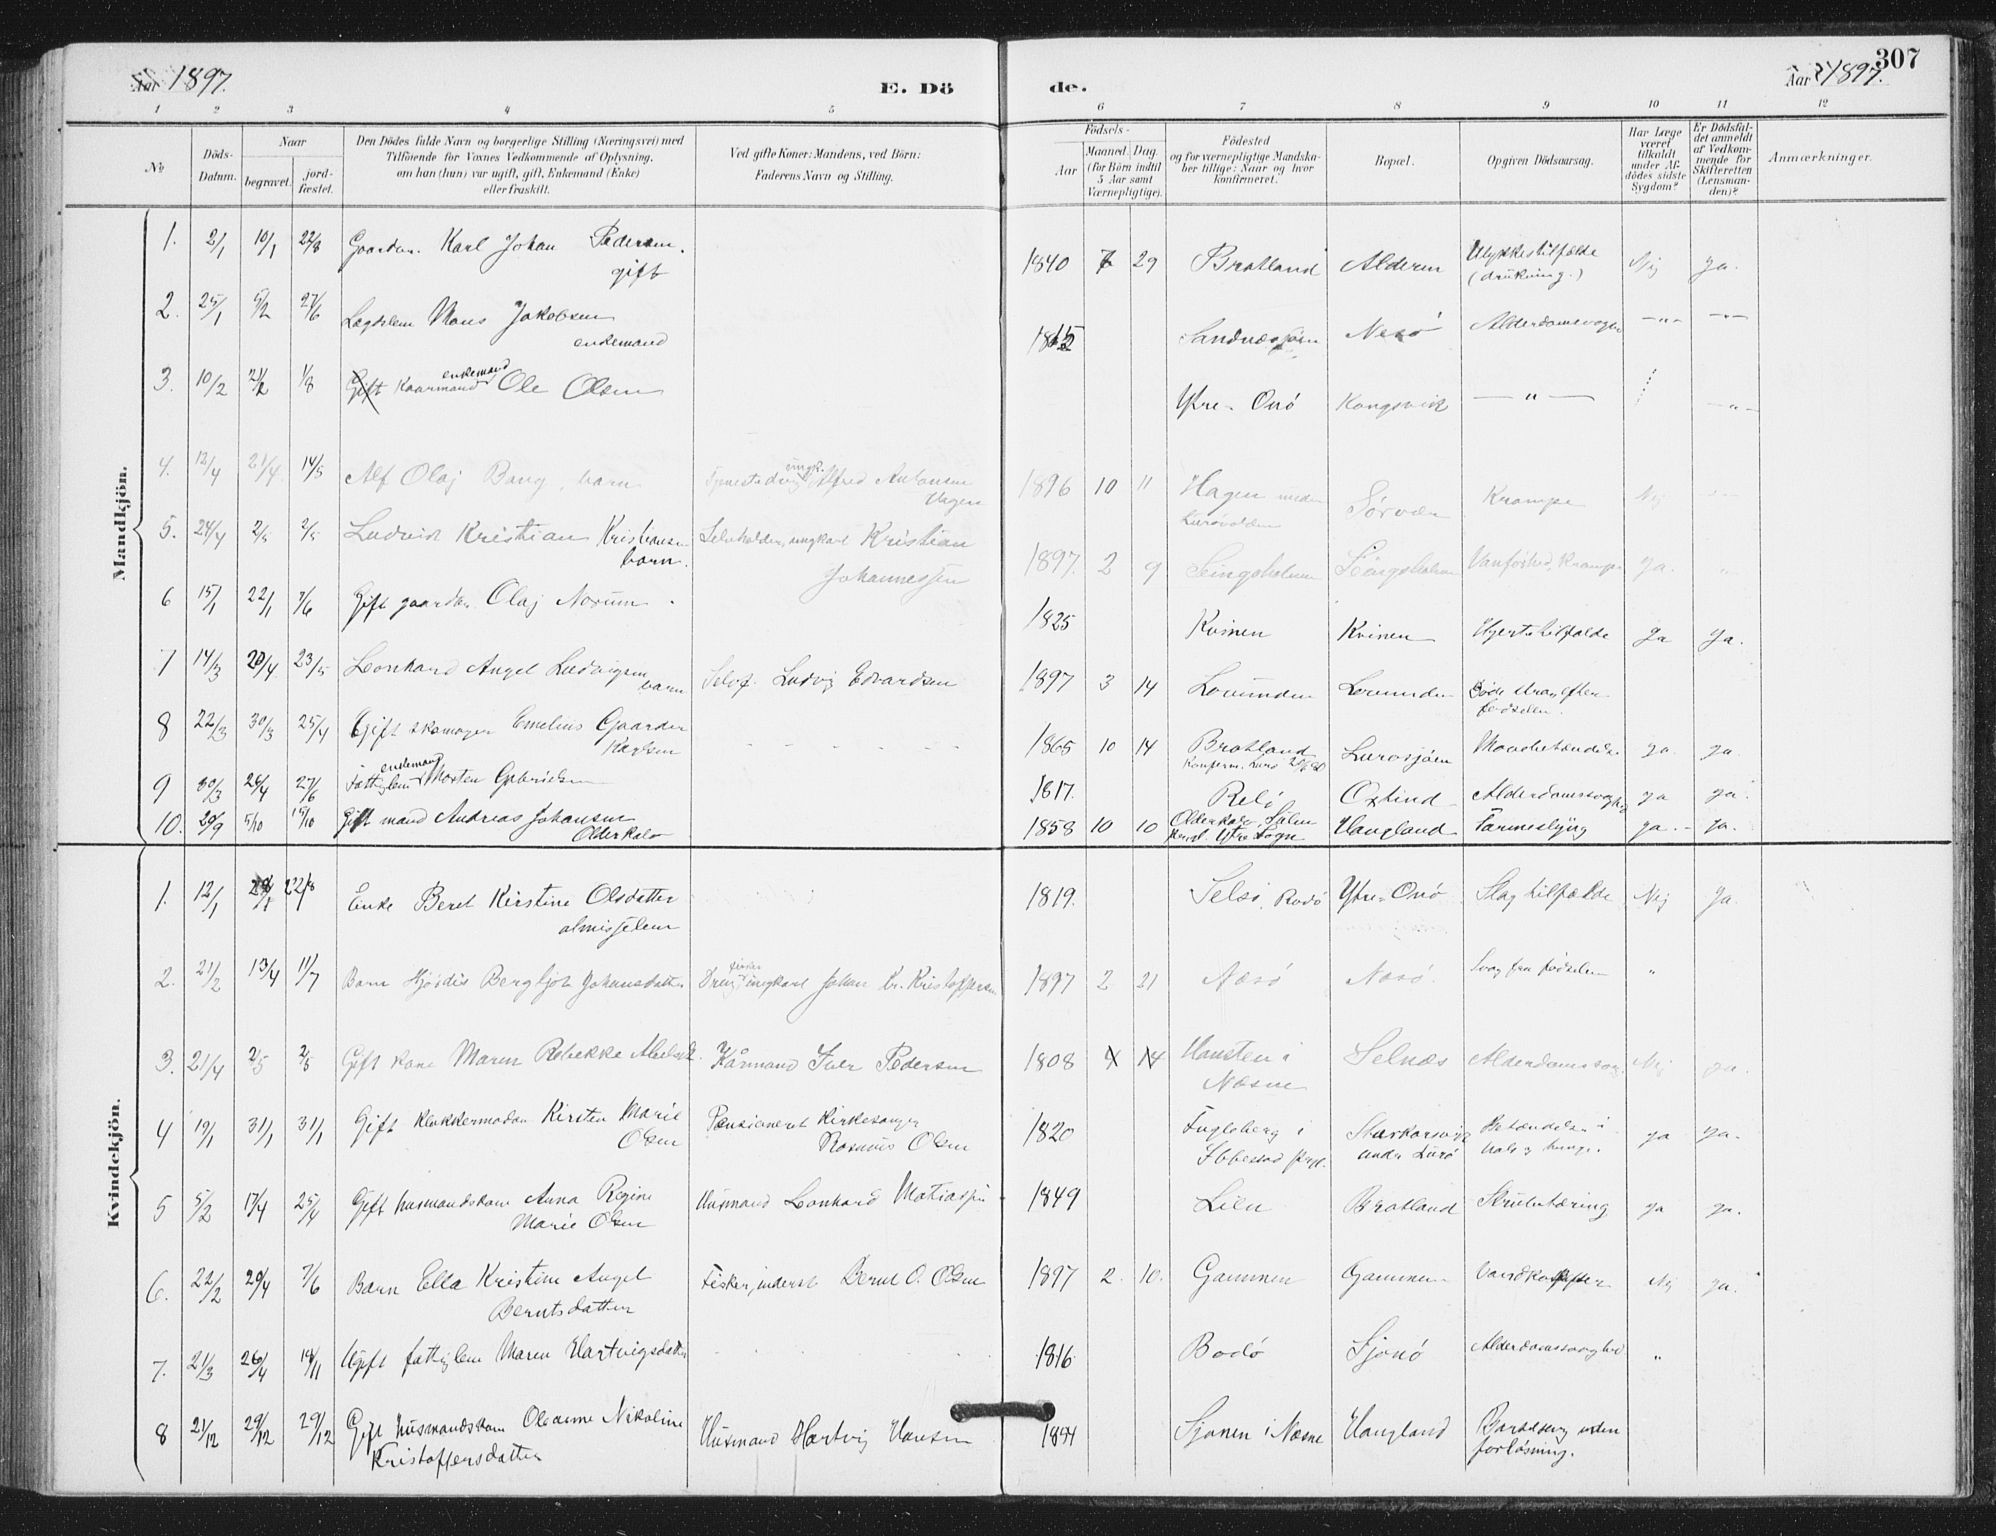 Aar 1897. E. Dö de. Aar 1897. 307
1 2 3 4 5 6 7 8 9 10 11 12
No Döds-Datum. Naar begravet. jord-fæstet. Den Dödes fulde Navn og borgerlige Stilling (Næringsvei) med Tilföiende for Voxnes Vedkommende af Oplysning, om han (hun) var ugift, gift, Enkemand (Enke) eller fraskilt. Ved gifte Koner: Mandens, ved Börn: Faderens Navn og Stilling. Födsels- Aar Maaned. Dag. (for Börn indtil 5 Aar samt Værnepligtige). Födested og for værnepligtige Mandskaber tillige: Naar og hvor konfirmeret. Bopæl. Opgiven Dödsaarsag. Har Læge været tilkaldt under Afdödes sidste Sygdom? Er Dödsfaldet anmeldt af Vedkommende for Skifteretten (Lensmanden)? Anmærkninger.
Mandkjön.
1. 2/1 10/1 22/8 Gaardm. Karl Johan Pedersen. gift 1840 7 29 Bratland Alderen Ulykkestilfælde (drukning.) Nej ja.
2. 25/1 5/2 27/6 Lægdslem Mons Jakobsen enkemand Sandnessjøen Nesø Alderdomssvaghed —"— —"—
3. 10/2 21/2 1/8 Gift Kaarmand enkemand Ole Olsen Ytre-Onø Kongsvik —"— —"—
4. 12/4 21/4. 14/5 Alf Olaj Bang, barn Tjenestedreng ungk. Alfred Antonsen Hagen 1896 10 11 Hagen under Lurøvolden Sørvær Krampe Nej
5. 24/4 2/5 2/5 Ludvik Kristian Kristiansen barn. Selvholden, ungkarl Kristian Johannessen 1897. 2 9 Seingsholmen Seingsholmen Vanførhed, Krampe Ja. "
6 15/1 22/1 7/6 Gift gaardm. Olaj Norum. 1825 Kvinen Kvinen Hjertetilfælde Ja Ja.
7 14/3 20/4. 23/5 Leonhard Angel Ludvigsen barn Selvf. Ludvig Edvardsen 1897 3 14 Lovunden Lovunden Døde strax efter fødselen.
8 22/3 30/3 25/4 Gift skomager Emelius Gaarder Karlsen 1865 10 14 Bratland Konferm. Lurø Lurøsjøen ja. ja.
9 30/3 26/4 27/6 enkemand Fattiglem Morten Gabrielsen 1817. Relø Oxtind Alderdomssvaghed ja ja.
10. 20/9 5/10 15/10 Gift mand Andreas Johansen Olderkalv 1858 10 10 Olderkalv, Sulen Ytre Sogn Haugland Tarmeslyng ja. - ja.
Kvindekjön.
1. 12/1 22/8 Enke Beret Kirstine Olsdatter almisselem 1819. Selsø, Rødø Ytre-Onø Slagtilfælde Nej Ja.
2. 21/2 13/4 11/7 Barn Hjørdis Bergljot Johansdatter Dreng, fisker ungkarl Johan Kr. Kristoffersen 1897 2 21 Næsø Næsø. Svag fra fødselen "
3. 21/4 2/5 2/5 Gift kone Maren Rebekke Kårmand Iver Pedersen 1808 4 14 Hansten i Næsne Selnæs Alderdomssvag. Nej ja.
4 19/1 31/1 31/1 Gift Klokkermadam Kirsten Marie Olsen Pensioneret Kirkesanger Rasmus Olsen 1820 Fugleberg i Ibbestad Præst. Starkarsvik under Lurø Betændelse i hals og lunge. ja ja.
5 5/2 17/4 25/4 Gift husmandskone Anna Regine Marie Olsen Husmand Leonhard Matiassen 1849 Liln Bratland Strubetæring ja ja.
6. 22/2 20/4 7/6 Barn Ella Kristine Angel Berntsdatter Fisker, inderst Bernt O. Olsen 1897 2. 10. Gammen Gammen Vandkopper Nej ja.
7. 21/3 26/4 14/11 Ugift fattiglem Maren Hartvigsdatter 1816 Bodø Sjonø Alderdomssvaghed "
8 21/12 29/12 29/12 Gift husmandskone Oleanne Nikoline Kristoffersdatter Husmand Hartvig Hansen 1844 Sjonen i Næsne Haugland Barselseng uden forløsning.